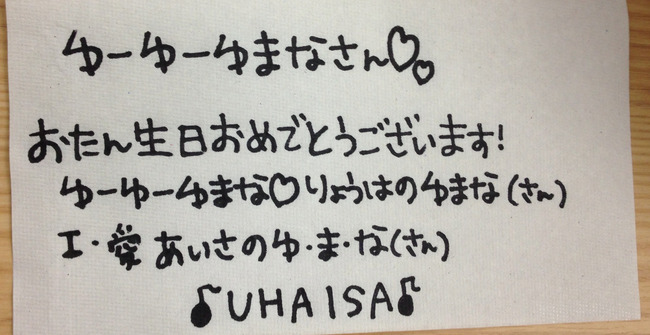 ゆーゆーゆまなさん♡♡
おたん生日おめでとうございます!
ゆーゆーゆまな♡りょうはのゆまな(さん)
I・愛 あいさのゆ・ま・な(さん)
♪UHAISA♪